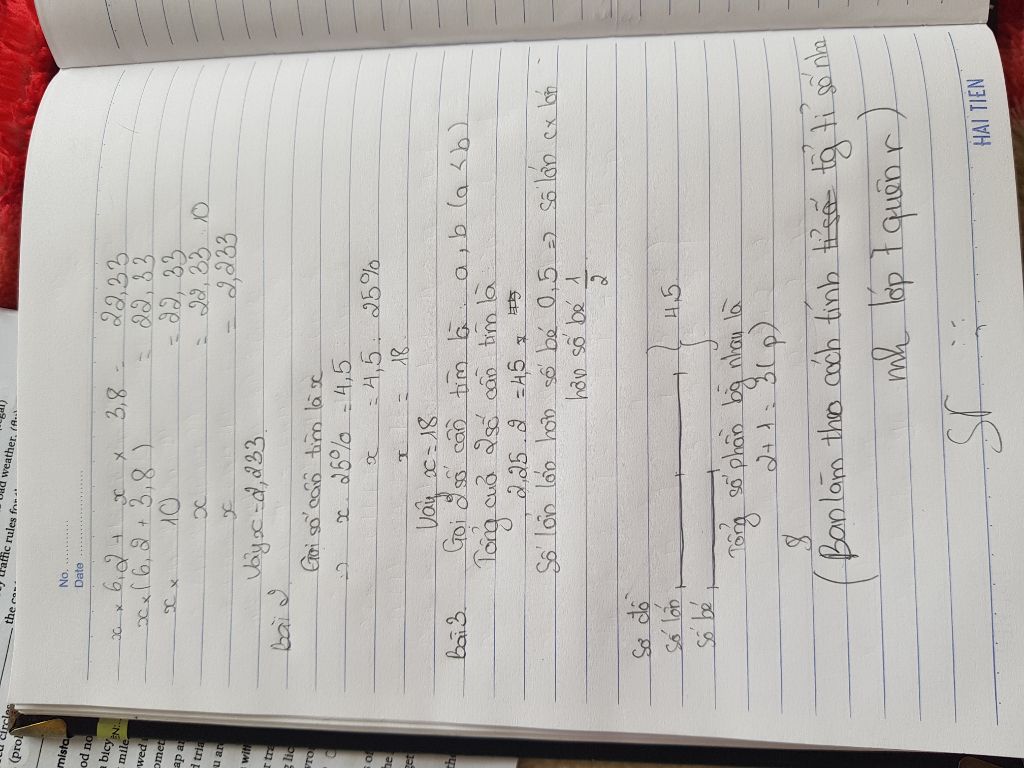 No. ..........
Date ....................
x × 6,2 + x × 3,8 = 22,33
x × (6,2 + 3,8) = 22,33
x × 10 = 22,33
x = 22,33 : 10
x = 2,233
Vây x = 2,233.
Bài 2
Gọi số cần tìm là x
=> x. 25% = 4,5
x = 4,5 : 25%
x = 18
Vây x = 18
Bài 3. Gọi 2 số cần tìm là: a, b (a < b)
Tổng cuả 2 số cần tìm là
2,25 . 2 = 4,5
Số lớn lớn hơn số bé 0,5 => số lớn lớn
hơn số bé 1/2
Sơ đồ
Số lớn
4,5
Số bé
Tổng số phần bằng nhau là
2 + 1 = 3 (p)
(Bạn làm theo cách tính tỉ số nha
mh lớp 7 quên r)
HAI TIEN